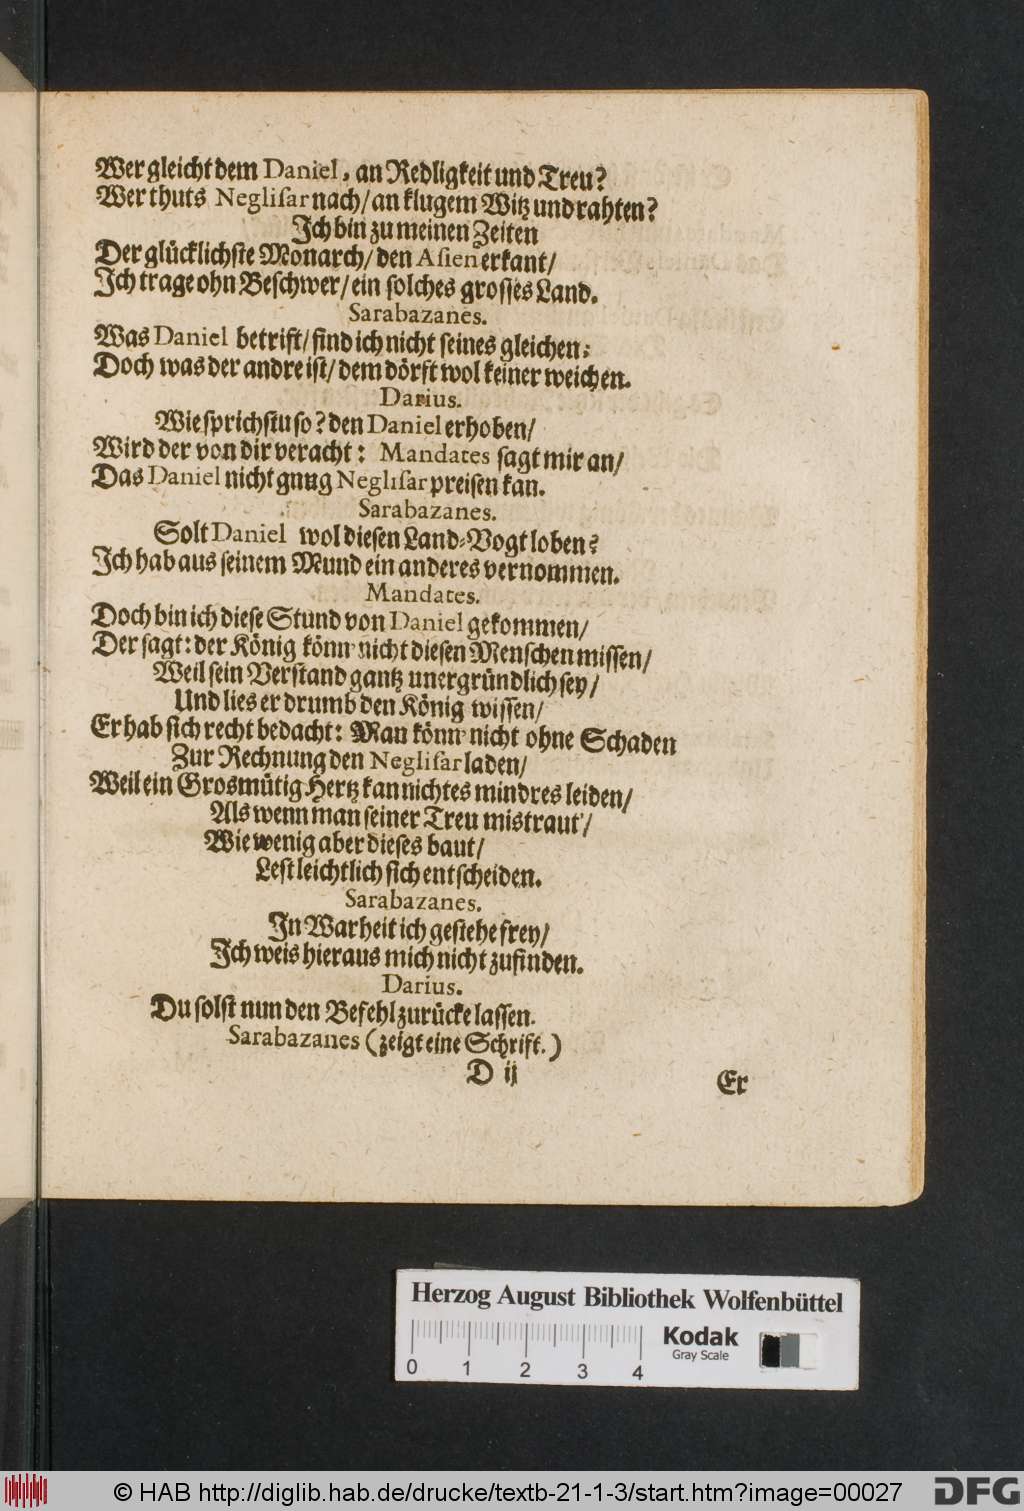 Wer gleicht dem Daniel, an Redligkeit und Treu?
Wer thuts Neglisar nach/ an klugem Witz und rahten?
Ich bin zu meinen Zeiten
Der glücklichste Monarch/ den Asien erkant/
Ich trage ohn Beschwer/ ein solches grosses Land.
Sarabazanes.
Was Daniel betrift/ find ich nicht seines gleichen;
Doch was der andre ist/ dem dörft wol keiner weichen.
Darius.
Wie sprichstu so? den Daniel erhoben/
Wird der von dir veracht: Mandates sagt mir an/
Das Daniel nicht gnug Neglisar preisen kan.
Sarabazanes.
Solt Daniel wol diesen Land-Vogt loben?
Ich hab aus seinem Mund ein anderes vernommen.
Mandates.
Doch bin ich diese Stund von Daniel gekommen/
Der sagt: der König könn' nicht diesen Menschen missen/
Weil sein Verstand gantz unergründlich sey/
Und lies er drumb den König wissen/
Er hab sich recht bedacht: Man könn' nicht ohne Schaden
Zur Rechnung den Neglisar laden/
Weil ein Grosmütig Hertz kan nichtes mindres leiden/
Als wenn man seiner Treu mistraut'/
Wie wenig aber dieses baut/
Lest leichtlich sich entscheiden.
Sarabazanes.
In Warheit ich gestehe frey/
Ich weis hieraus mich nicht zufinden.
Darius.
Du solst nun den Befehl zurücke lassen.
Sarabazanes (zeigt eine Schrift.)
D ij
Er
Herzog August Bibliothek Wolfenbüttel
Kodak
Gray Scale
0 1 2 3 4
© HAB http://diglib.hab.de/drucke/textb-21-1-3/start.htm?image=00027
DFG